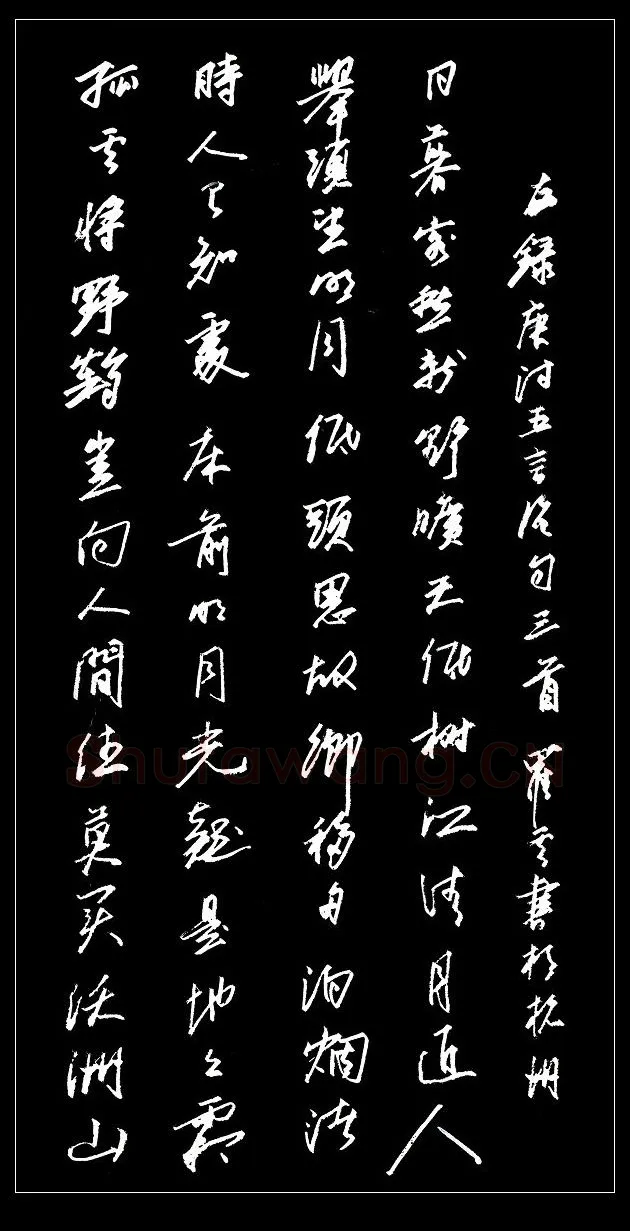 孤雲將野鶴豈向人間住莫買沃洲山
時人已知處床前明月光疑是地上霜
舉頭望明月低頭思故鄉移舟泊烟渚
日暮客愁新野曠天低樹江清月近人
左錄唐詩五言絕句三首雲書於杭州
Shufawang.cn